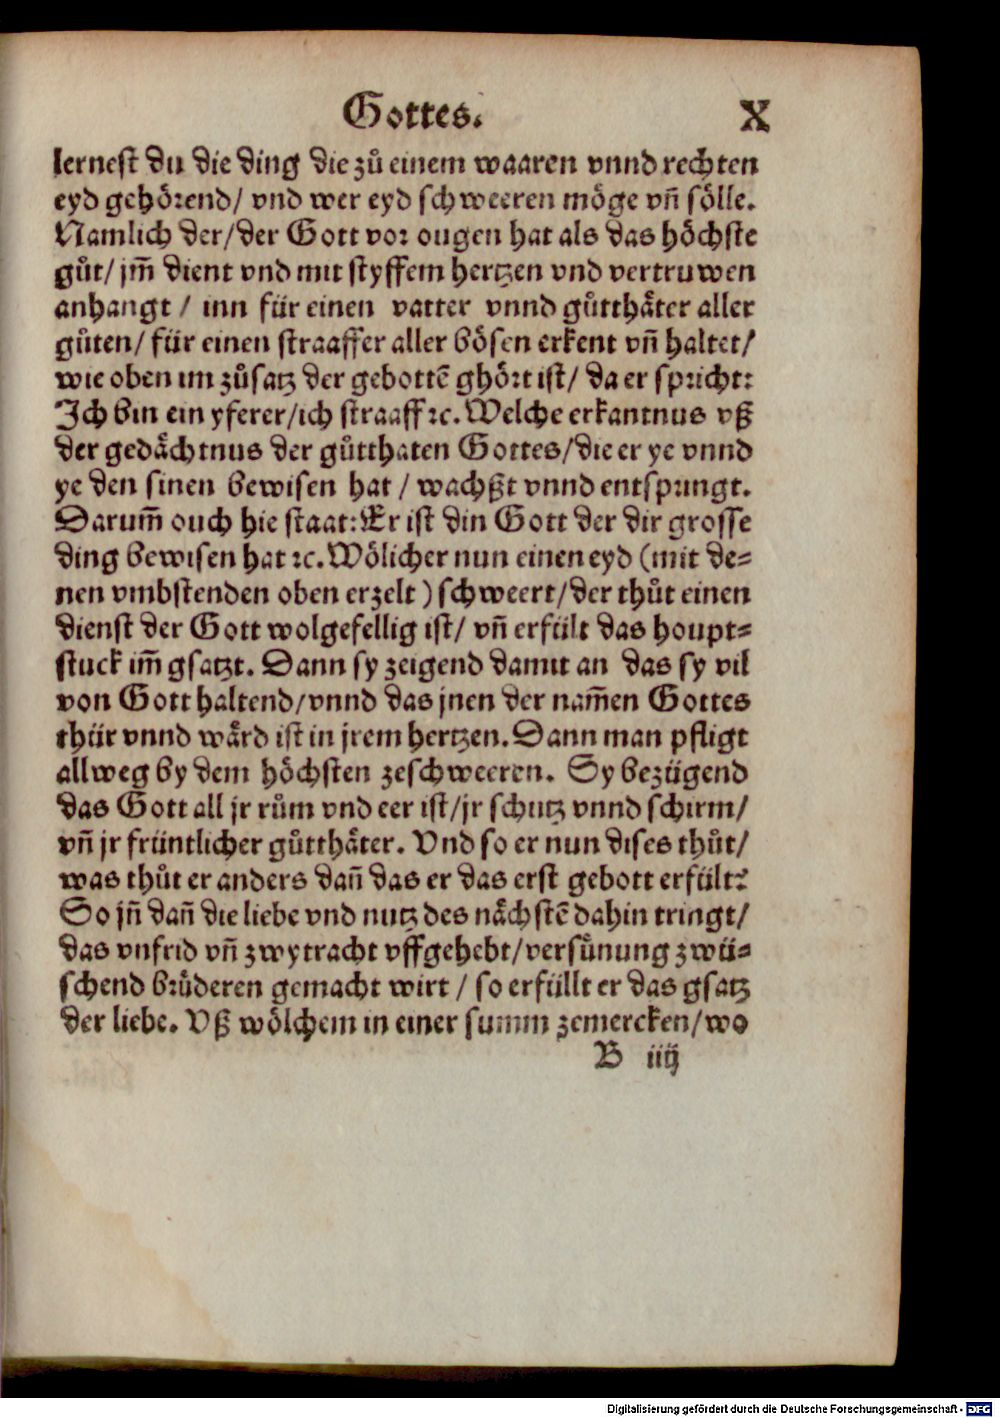 Gottes. X
lernest du die ding die zů einem waaren vnnd rechten
eyd gehörend/ vnd wer eyd schweeren möge vn̄ sölle.
Namlich der/der Gott vor ougen hat als das höchste
gůt/ jm̄ dient vnd mit styffem hertzen vnd vertruwen
anhangt / inn für einen vatter vnnd gůtthäter aller
gůten/ für einen straaffer aller bösen erkent vn̄ haltet/
wie oben im zůsatz der gebottē ghört ist/ da er spricht:
Ich bin ein yferer/ich straaff ꝛc. Welche erkantnus vß
der gedächtnus der gůtthaten Gottes/die er ye vnnd
ye den sinen bewisen hat / wachßt vnnd entspringt.
Darum̄ ouch hie staat: Er ist din Gott der dir grosse
ding bewisen hat ꝛc. Wölicher nun einen eyd (mit de-
nen vmbstenden oben erzelt) schweert/der thůt einen
dienst der Gott wolgefellig ist/ vn̄ erfült das houpt-
stuck im̄ gsatzt. Dann sy zeigend damit an das sy vil
von Gott haltend/vnnd das jnen der nam̄en Gottes
thür vnnd wärd ist in jrem hertzen. Dann man pfligt
allweg by dem höchsten zeschweeren. Sy bezügend
das Gott all jr rům vnd eer ist/jr schutz vnnd schirm/
vn̄ jr früntlicher gůtthäter. Vnd so er nun dises thůt/
was thůt er anders dan̄ das er das erst gebott erfült?
So jn̄ dan̄ die liebe vnd nutz des nächstē dahin tringt/
das vnfrid vn̄ zwytracht vffgehebt/versůnung zwü-
schend brůderen gemacht wirt / so erfüllt er das gsatz
der liebe. Vß wölchem in einer summ zemercken/wo
B iiij
Digitalisierung gefördert durch die Deutsche Forschungsgemeinschaft - DFG